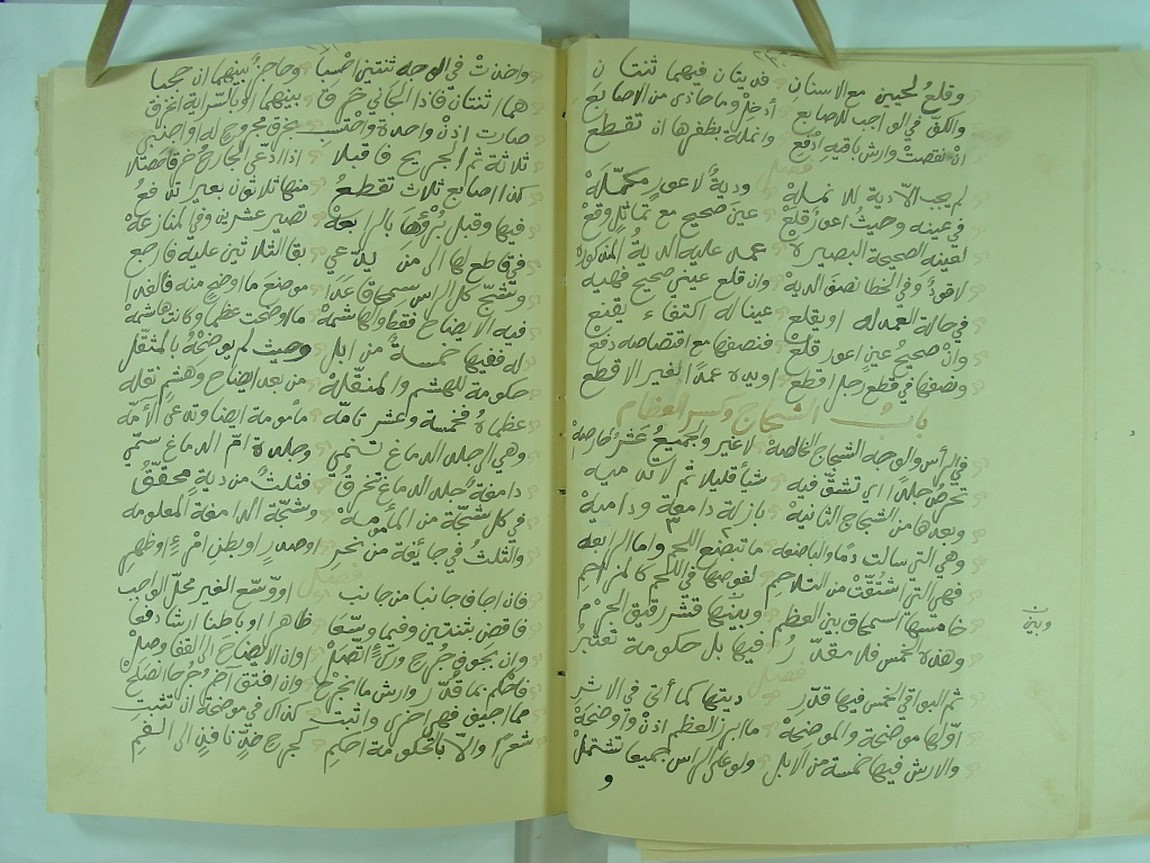 وقلعُ لحيين مع الاسنان فديتان فيهما ثنتان
والكف في الواجب للاصابع أدخِلْ وما حاذى من الاصابع
انْ نقصتْ وارش باقيه ادْفع وانملة بظفرها ان تقطع
فصل
لم يجب الّا دية للانمله وديةٌ لاعورٍ مكمّلهْ
في عينه وحيثُ اعورٌ قلعْ عينَ صحيح مع تماثلٍ وقعْ
لعينه الصحيحة البصيره عمدا عليه الديةُ المذكوره
لا قودٌ وفي الخطا نصف الديهْ وان قلع عيني صحيح فهيه
في حالة العمد له او يقلع عينا له اكتفاء يقنع
وانْ صحيحٌ عين اعور قلعْ فنصفها مع اقتصاصه دفعْ
ونصفها في قطع رجل اقطع او يده عمدًا لغير الاقطع
بابُ الشجاج وكسر العظام
في الرأس والوجه الشجاج الخاصهْ لا غير والجميعُ عَشرٌ حارصهْ
تحرصُ جلدًا اي تشق فيه شيأ قليلا ثم لا تدميه
وبعدها من الشجاج الثانيهْ بازلة دامعة وداميهْ
وهي التي سالت دمًا والباضعه ما تبضع اللحم واما الرابعه
فهي التي اشتُقّتْ من التلاحمِ لغوصها في اللحم كالمزاحمِ
خامسها السمحاق بين العظم وبينها قشر رقيق الجرْم
وبين
وهذه الخمس فلا مقدّرُ فيها بل حكومة تعتبرُ
فصل
ثم البواقي الخمس فيها قدّر ديتها كما أتى في الاثر
اوّلها موضحة والموضحهْ ما ابرز العظم اذنْ واوضحهْ
والارش فيها خمسة من الابل ولو على الرأس جميعا تشتملْ
و
واخذتْ في الوجه ثنتين احسبا وحاجزٌ بينهما ان حجبا
هما اثنتان فاذا الجاني خرق ما بينهما او بالسّراية انخرق
صارت اذنْ واحدة واحْتسب بخرق مجروح له او اجنبي
ثلاثة ثم الجريح فاقبلا اذا ادّعى الجارح خرقا حصّلا
كذا اصابع ثلاث تقطعُ منها ثلاثون بعيرا تدفعُ
فيها وقبل بُرْؤِها بالرابعهْ تصير عشرين وفي المنازعهْ
في قاطع لها الى من يدّعي بقا الثلاثين عليه فارجع
وشجّ كل الراس سمحاقا عدا موضعَ ما اوضح منه فالفدا
فيه الايضاح فقط والهاشمهْ ما اوضحت عظما وكانت هاشمهْ
له ففيها خمسةٌ من ابل وحيث لم يوضحْهُ بالمثقّل
حكومة للهشم والمنقّلهْ من بعد ايضاح وهشم نقله
عظما فخمسة وعشر تامّه مأمومة ايضا وتدعى الآمّه
وهي الى جلد الدماغ تنتمي وجلدة امّ الدماغ سمّي
دامغةٌ جلد الدماغ تخرقُ فثلثٌ من ديةٍ محقّقُ
في كل شجّة من المأمومه وشجّة الدامغة المعلومه
والثلثُ في جائفة من نحرِ او صدرٍ او بطنِ امْرِءٍ او ظهرِ
فصل
فان اجاف جانبا من جانب او وسّع الغير محلّ الواجب
فاقض بثنتين وفيما وسّعا ظاهرا او باطنا ارشا دفعا
وان بجوف جُرح وركٍ اتّصلْ او ان الايضاح الى القفا وصلْ
فاحْكم بما قُدّر وارش ما انجرحْ وان افتق آخر جُرحا انصلحْ
مما اجيف فهي اخرى واثبت كذاك في موضحة ان تنبت
شعرًا والّا بالحكومة احكمِ كجرح خدٍّ نافذٍ الى الفمِ